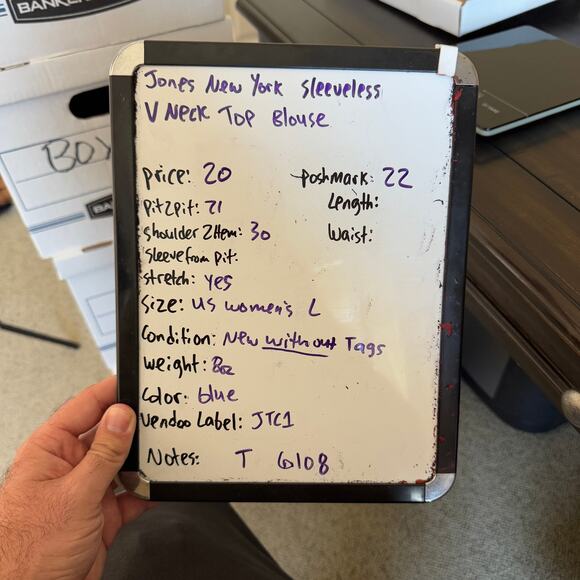 BANKERS
BOX
Jones New York Sleeveless
V Neck Top Blouse
price: 20
poshmark: 22
pit2pit: 21
Length:
Shoulder 2 Hem: 30
Waist:
Sleeve from pit:
stretch: yes
Size: US women's L
Condition: New without Tags
weight: 8oz
Color: blue
Vendoo Label: JTC1
Notes: T 6108